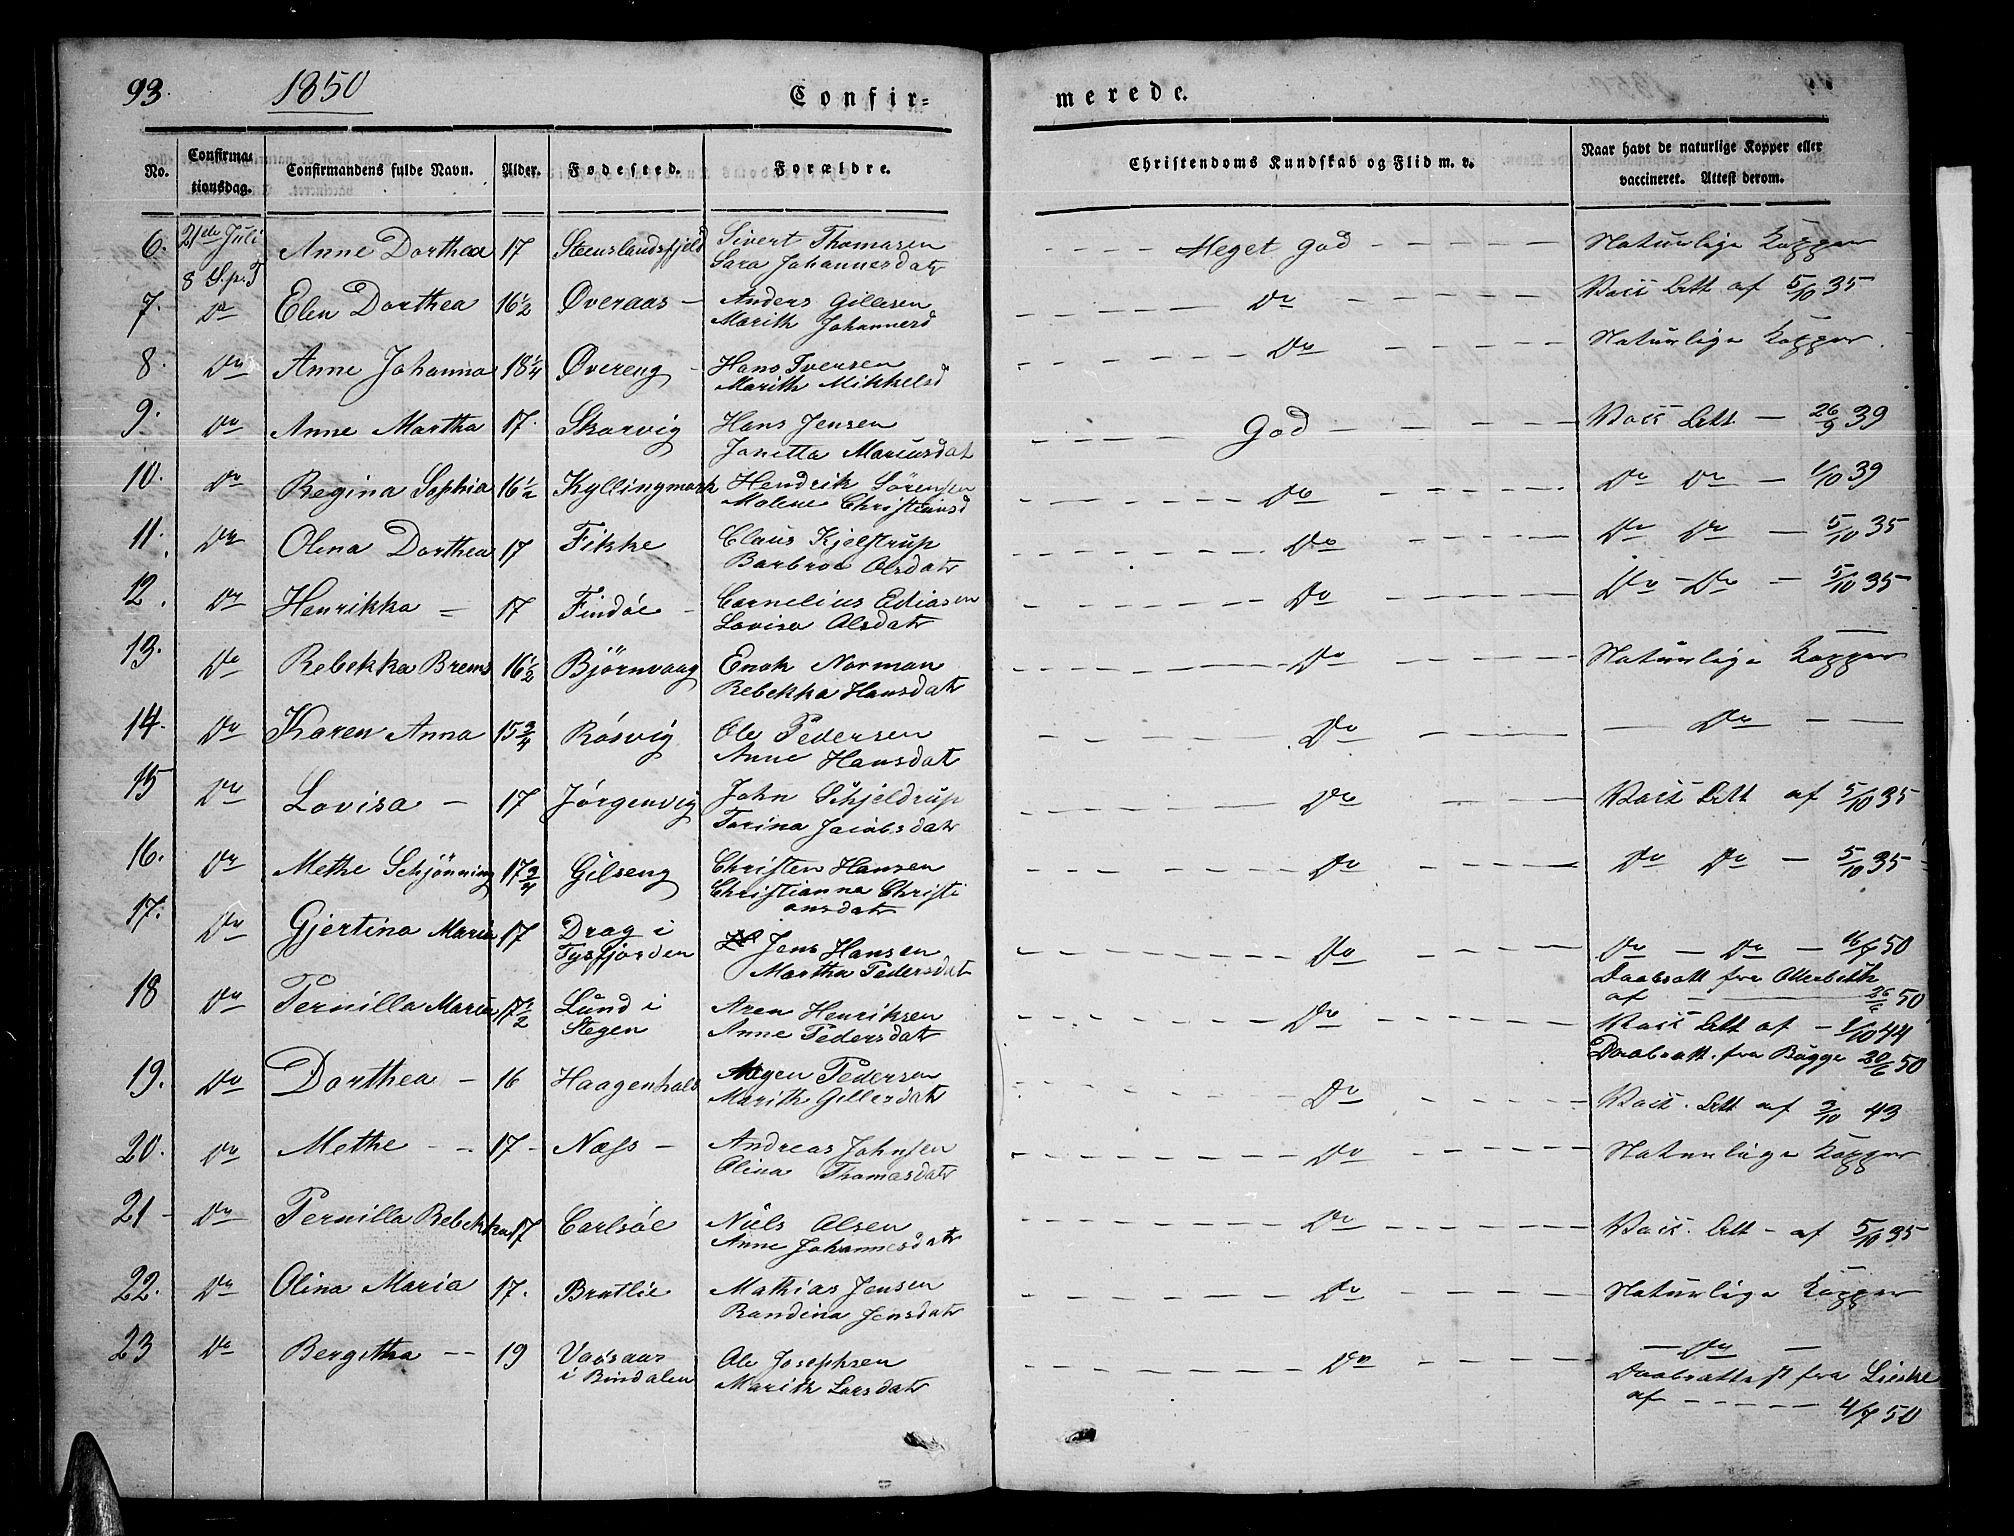 93. 1850 Confir=
merede.
No. Confirma=tionsdag. Confirmandens fulde Navn. Alder. Fødested. Forældre. Christendoms Kundskab og Flid m. v. Naar havt de naturlige Kopper eller vaccineret. Attest derom.
6. 21de Juli Anne Dorthea 17 Steenslandsfjeld Sivert Thomasen Meget God Naturlige Kopper
8 S. p. T Sara Johannesdatr
7. Do Elen Dorthea 16½ Øveraas - Anders Gillesen Do Vacc Att af 5/10 35
Marith Johannesd
8. Do Anne Johanna 18¼ Øvereng - Hans Iversen Do Naturlige Kopper.
Marith Mikkelsd
9. Do Anne Martha 17. Skarvig Hans Jensen God Vacc Att. - 26/9 39
Janetta Mariusdat
10. Do Regina Sophia 16½ Kyllingmark Hendrik Sørensen Do Do Do - 1/10 39
Malene Christiansd
11. Do Olena Dorthea 17 Fikke Claus Kjelstrup Do Do Do - 5/10 35
Barbroe Olsdatr
12. Do Henrikka - 17 Findöe - Cornelius Ediasen Do Do - Do - 5/10 35
Lovisa Olsdatr
13. Do Rebekka Brems 16½ Bjørnvaag Enok Norman Do Naturlige Kopper
Rebekka Hansdatr
14. Do Karen Anna 15¾ Røsvig Ole Pedersen Do - Do -
Anne Hansdatr
15 Do Lovisa - 17 Jørgenvig John Schjeldrup Do Vacc Att af 5/10 35
Tarina Jacobsdatr
16. Do Methe Schjønning 17¾ Gilseng Christen Hansen Do Do Do - 5/10 35
Christianna Christi
ansdatr
17. Do Gjertina Maria 17 Drag i Jens Hansen Do Do - Do - 16/7 50
Tysfjorden Martha Pedersdatr Daabsatt fra
af 26/6 50
18 Do Pernilla Maria 17½ Lund i Aren Henriksen Do Vacc Att af - 1/10 44
Stegen Anne Pedersdatr Daabsatt. fra Bugge 20/6 50
19. Do Dorthea - 16 Haagenhals Mogen Pedersen Do Vacc. Att af 3/10 43
Marith Gillesdatr
20. Do Methe - - 17 - Næss - Andreas Johnsen Do Naturlige Kopper
Olina Thomasdatr
21 - Do Pernilla Rebekka 17 Carlsöe Niels Olsen Do Vacc. Att - af 5/10 35
Anne Johannesdatr
22. Do Olina Maria 17. Bratlie Mathias Jensen Do Naturlige Kopper
Randina Jensdatr
23 Do Bergitha - - 19 Ole Josephsen Do - Do -
i Bindalen Marith Larsdatr Daabsattest fra
af - - - - - 4/7 50